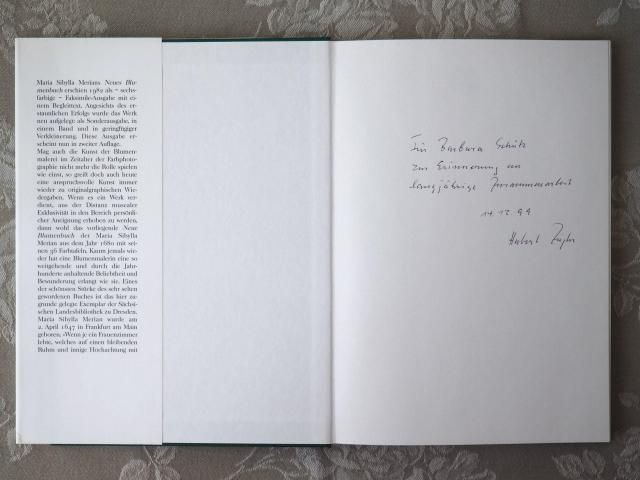 Maria Sibylla Merians Neues Blu-
menbuch erschien 1982 als – sechs-
farbige – Faksimile-Ausgabe mit ei-
nem Begleittext. Angesichts des er-
staunlichen Erfolgs wurde das Werk
neu aufgelegt als Sonderausgabe, in
einem Band und in geringfügiger
Verkleinerung. Diese Ausgabe er-
scheint nun in zweiter Auflage.
Mag auch die Kunst der Blumen-
malerei im Zeitalter der Farbphoto-
graphie nicht mehr die Rolle spielen
wie einst, so greift doch auch heute
eine anspruchsvolle Kunst immer
wieder zu originalgraphischen Wie-
dergaben. Wenn es ein Werk ver-
dient, aus der Distanz musealer
Exklusivität in den Bereich persönli-
cher Aneignung erhoben zu werden,
dann wohl das vorliegende Neue
Blumenbuch der Maria Sibylla
Merian aus dem Jahr 1680 mit sei-
nen 36 Farbtafeln. Kaum jemals wie-
der hat eine Blumenmalerin eine so
weitgehende und durch die Jahr-
hunderte anhaltende Beliebtheit und
Bewunderung erlangt wie sie. Eines
der schönsten Stücke des sehr selten
gewordenen Buches ist das hier zu-
grunde gelegte Exemplar der Sächsi-
schen Landesbibliothek zu Dresden.
Maria Sibylla Merian wurde am
2. April 1647 in Frankfurt am Main
geboren. »Wenn je ein Frauenzimmer
lebte, welches auf einen bleibenden
Ruhm und innige Hochachtung mit
Für Barbara Schütz
zur Erinnerung an
langjährige Zusammenarbeit
14.12.99
Hubert